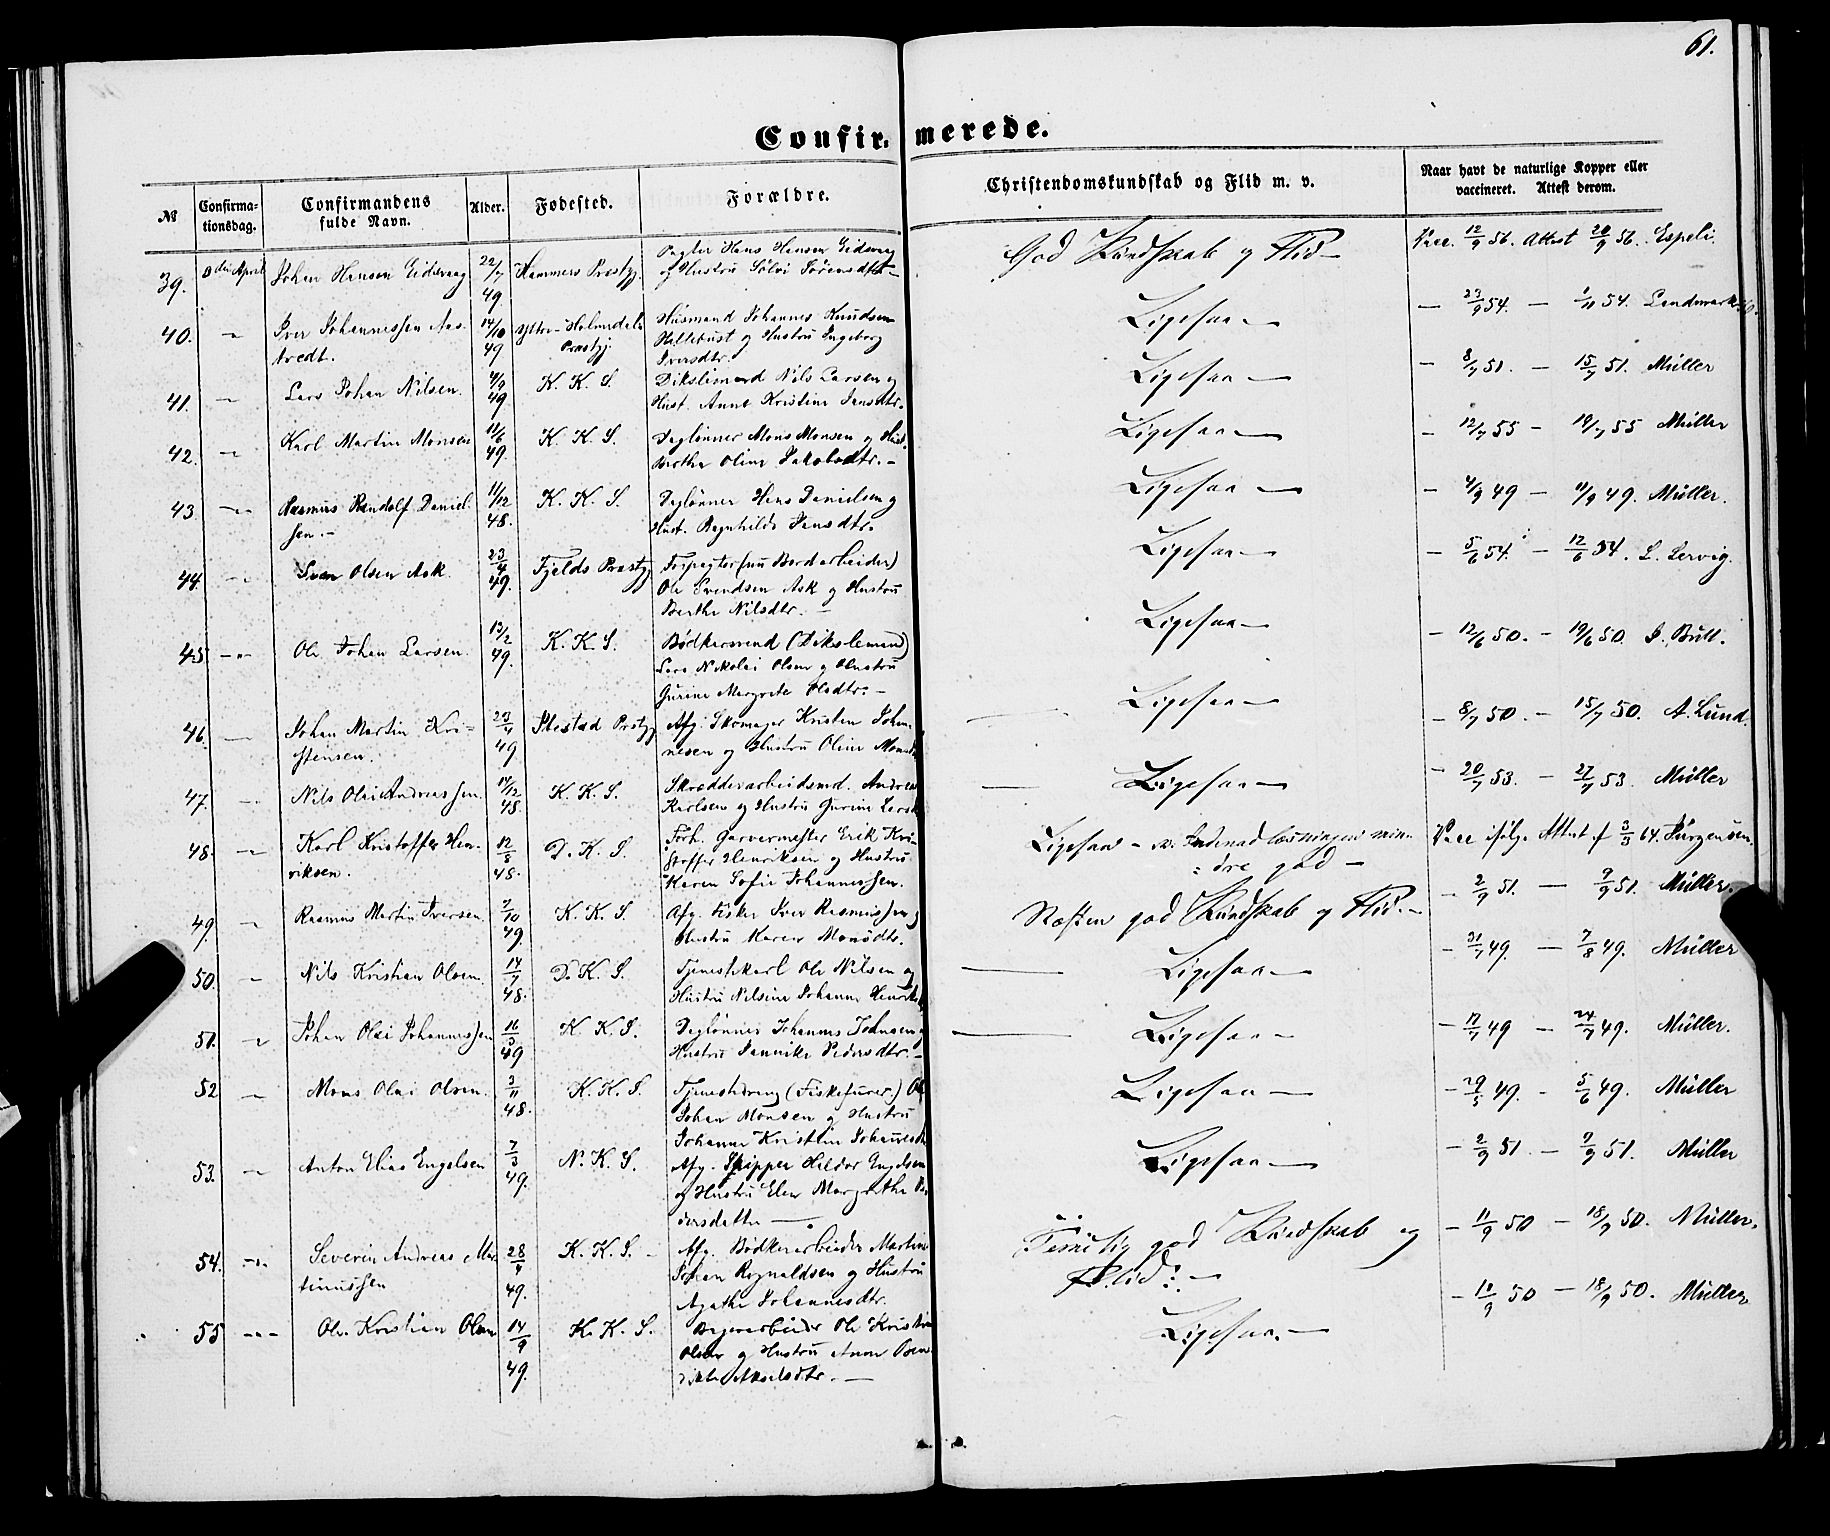 61.
Confirmerede.
№ Confirmationsdag. Confirmandens fulde Navn. Alder. Fødested. Forældre. Christendomskundskab og Flid m. v. Naar havt de naturlige Kopper eller vaccineret. Attest derom.
39. April Johan Hansen Eidsvaag 22/7 49. Hammers Præstgj. Hans Hansen Eidsvaag
og Hustru Sølvi God Kundskab og Flid — Vacc. 12/9 56. Attest 20/9 56. Espeli.
40. — Iver Johannessen Aas- 14/10 49 Ytter-Holmedals Husmand Johannes Knudsen
tvedt. Præstgj. Hilletvist og Hustru Ingeborg
Iversdtr. Ligesaa — — 23/9 54. — 1/11 54. Landmark
41. — Lars Johan Nilsen. 4/9 49. K. K. S. Nils Larsen og
Hust. Anne Kristine Jansdtr. Ligesaa — — 8/7 51. — 15/7 51. Müller
42. — Karl Martin Monsen 11/6 49. K. K. S. Daglønner Mons Monsen og Hust.
Berthe Oline Jakobsdtr. — Ligesaa — — 12/7 55 — 19/7 55 Müller
43. — Rasmus Randolf Daniel- 11/12 48. K. K. S. Daglønner Hans Danielsen og
sen. — Hust. Ragnhilde Jansdtr. Ligesaa — — 4/9 49 — 11/9 49. Müller.
44. — Sven Olsen Ask. 23/4 49. Fjelds Præstgj. Forpagter (nu Bordarbeider)
Ole Svendsen Ask og Hustru
Berthe Nilsdtr. — Ligesaa — — 5/6 54. — 12/6 54. L. Lervig.
45 — Ole Johan Larsen. 13/2 49. K. K. S. Bødkersvend (Dikslemand)
Lars Nikolai Olsen og Hustru
Gurine Margrete Olsdtr. — Ligesaa — — 12/6 50. — 19/6 50. J. Bull.
46. — Johan Martin Kri- 49 Præstgj. Afg. Skomager Kristen Johan-
stensen. nesen og Hustru Oline Monsdtr. Ligesaa — — 8/7 50. — 15/7 50. A. Lund.
47. — Nils Olai Andreassen. 14/12 48. K. K. S. Skrædderarbeidsmd. Andreas
Karlsen og Hustru Gurine Ligesaa — — 20/7 53. — 27/7 53. Müller
48. — Karl Kristoffer Hen- 12/8 48. D. K. S. Forh. Garvermester Erik Kri-
riksen. stoffer Henriksen og Hustru
Karen Sofie Johannessen. Ligesaa — min-
dre god — Vacc ifølge Attest af 3/3 64. Jürgensen.
49. — Rasmus Martin Iversen. 7/10 49. K. K. S. Afg. Fisker Iver Rasmussen og
Hustru Karen Monsdtr. Næsten god Kundskab og Flid. — — 2/9 51. — 9/9 51. Müller.
50. — Nils Kristian Olsen. 14/7 48. D. K. S. Tjenestekarl Ole Nilsen og
Hustru Nilsine Johanne Ligesaa — — 31/7 49. — 7/8 49. Müller
51. — Johan Olai Johannessen 16/3 49 K. K. S. Daglønner Johannes Johnsen og
Hustru Jannike Pedersdtr. — Ligesaa — — 17/7 49 — 24/7 49. Müller.
52 — Mons Olai Olsen. 3/11 48. K. K. S. Tjenestedreng (Fiskefører.) Ole
Johan Monsen og Hustru
Johanne Kristine Ligesaa — — 29/5 49. — 5/6 49. Müller
53. — Anton Elias Engelsen 7/3 49. N. K. S. Afg. Skipper Haldor Engelsen
og Hustru Elen Margrethe Pe-
dersdatter — Ligesaa — — 2/9 51. — 9/9 51. Müller
54. — Severin Andreas Mar- 28/9 49. K. K. S. — Afg. Bødkerarbeider Martin
tinussen Johan Rognaldsen og Hustru
Agathe Johannesdtr. Temmelig god Kundskab og
Flid. — — 11/9 50 — 18/9 50. Müller.
55 — Ole Kristian Olsen 14/9 49. K. K. S. Ole Kristian
Olsen og Hustru Anne Ben-
dikte Akselsdtr. — Ligesaa. — — 11/9 50 — 18/9 50. Müller